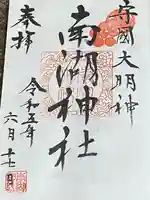 守國大明神
南湖神社
奉拝
令和五年
六月十七日